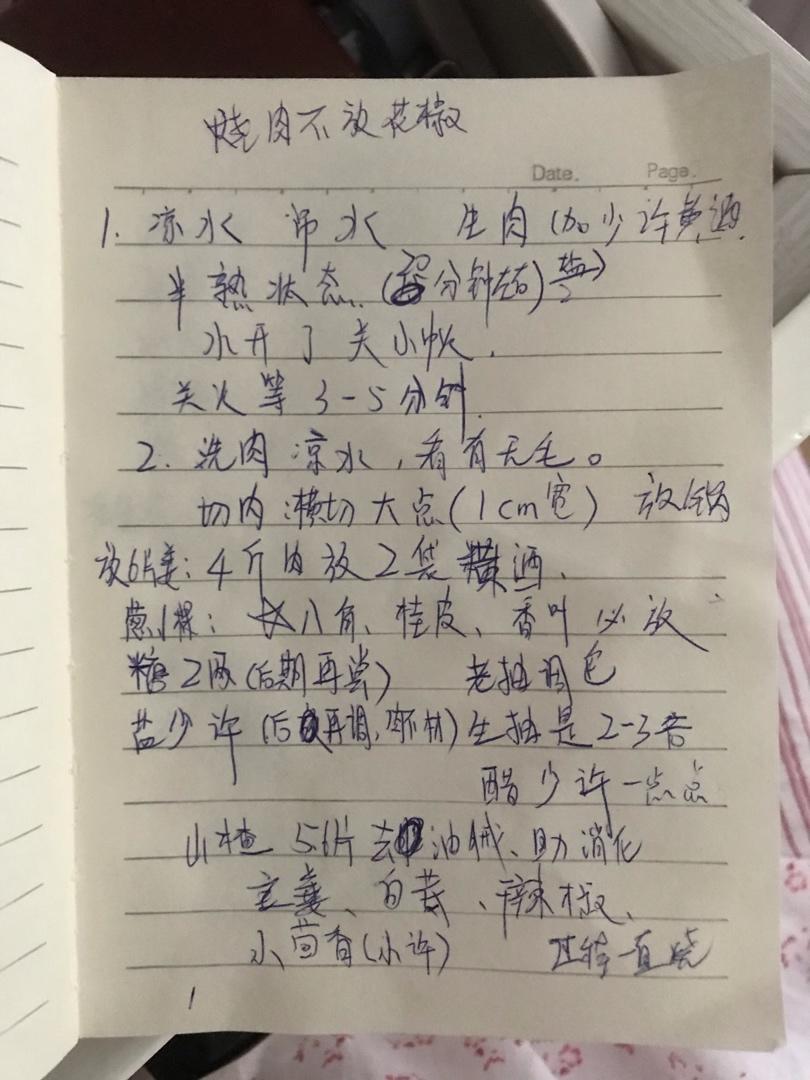 烧肉不放花椒
Date. Page.
1. 凉水 水 生肉(加少许黄酒
半熟状态 (20分钟左右)
水开了关小火.
关火等3-5分钟.
2. 洗肉 凉水,看有无毛。
切肉 横切大点(1cm宽) 放锅
放6片姜: 4斤肉放2袋黄酒.
葱1棵: 八角、桂皮、香叶必放
糖2两(后期再尝) 老抽调色
盐少许(后再调,) 生抽是2-3倍
醋少许一点点
山楂 56片 去油腻、助消化
白蔻、辣椒、
小茴香(小许) 一直烧
1